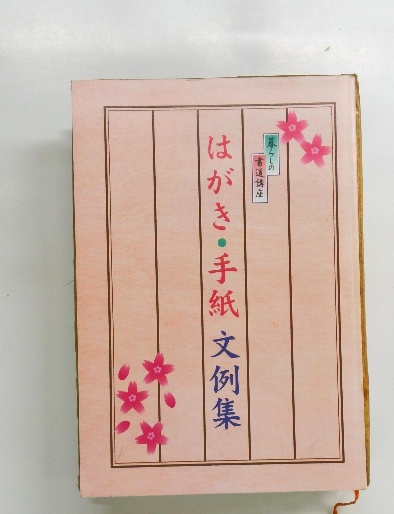 暮らしの
書道講座
はがき・手紙
文例集